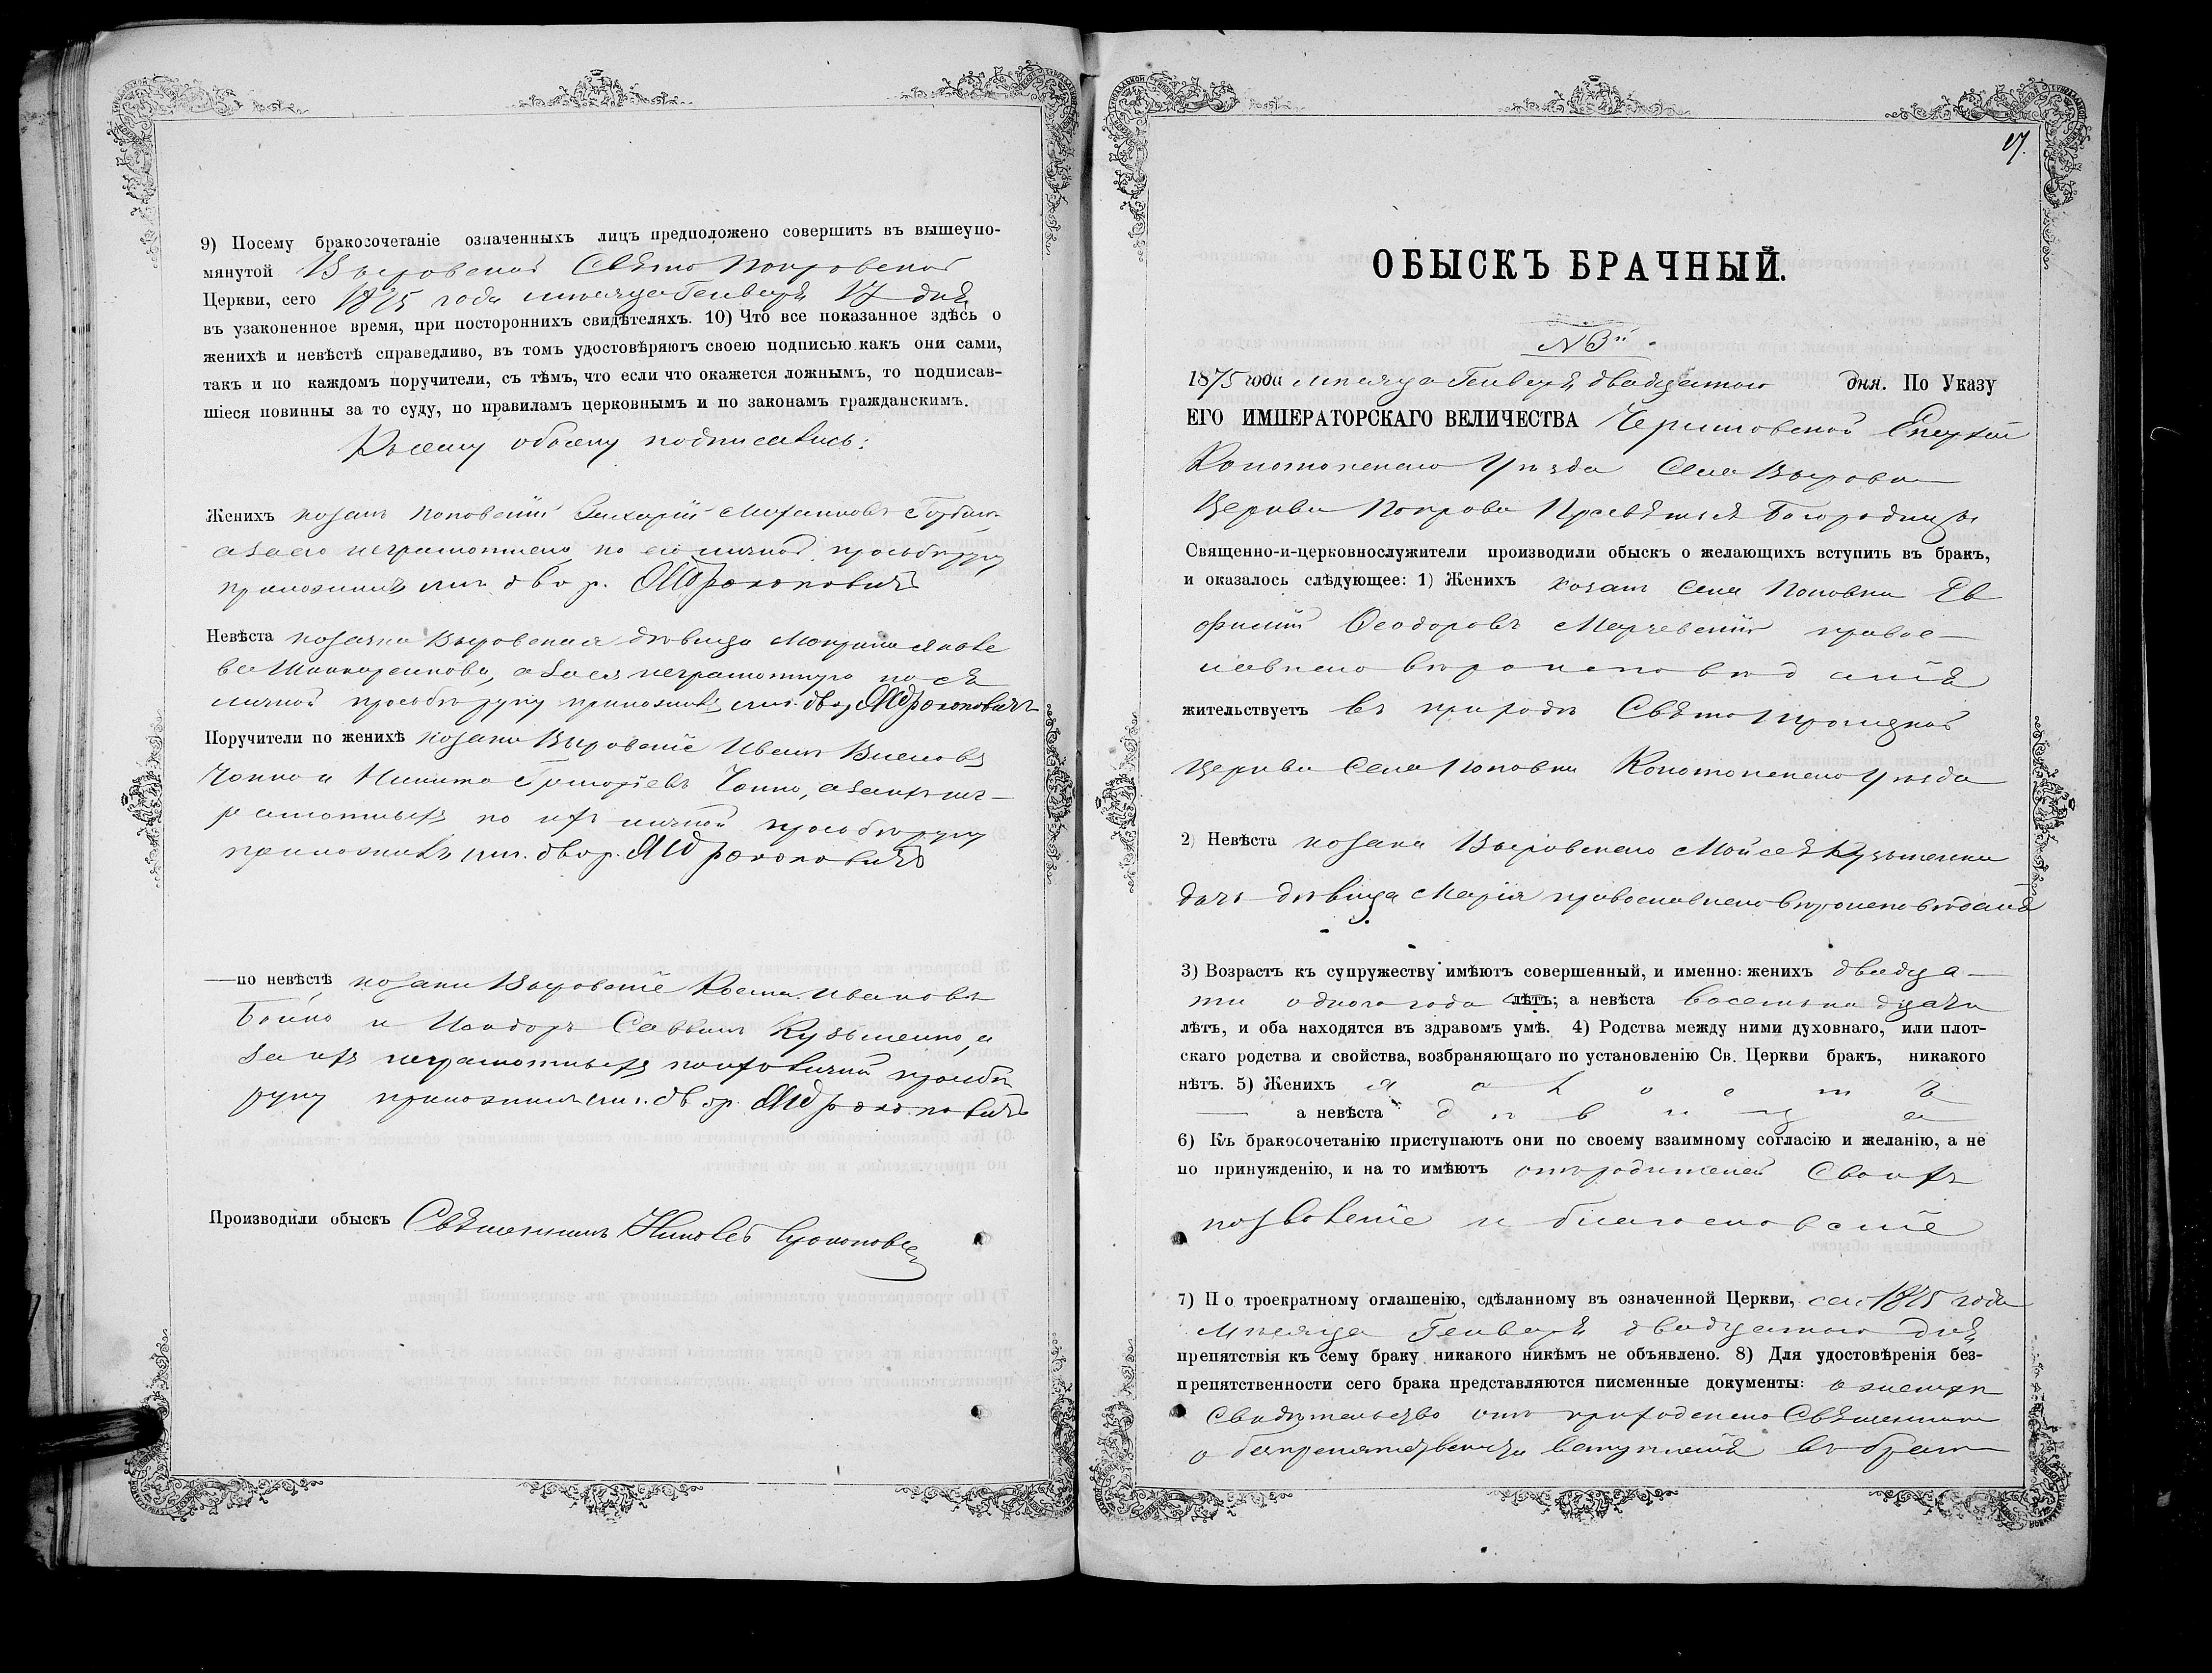 9) Посему бракосочетаніе означенныхъ лицъ предположено совершить въ вышеупо-
мянутой Выровской Свято Покровской
Церкви, сего 1875 года мѣсяца Генваря 17 дня
въ узаконенное время, при постороннихъ свидѣтеляхъ. 10) Что все показанное здѣсь о
женихѣ и невѣстѣ справедливо, въ томъ удостовѣряютъ своею подписью какъ они сами,
такъ и по каждомъ поручители, съ тѣмъ, что если что окажется ложнымъ, то подписав-
шіеся повинны за то суду, по правиламъ церковнымъ и по законамъ гражданскимъ.
Къ сему обыску подписались:
Женихъ козакъ Поповскій Захарій
а за его неграмотнаго по его личной просьбѣ руку
приложилъ двор. Прокоповичъ
Невѣста козачка Выровская дѣвица Мокрина Яковле
ва а за ея неграмотную по ея
личной просьбѣ руку приложилъ двор. Прокоповичъ
Поручители по женихѣ козаки Выровскіе Иванъ
Чопко и Никита Григоріевъ Чопко, а за ихъ нег-
рамотныхъ по ихъ личной просьбѣ руку
приложилъ двор. Прокоповичъ
—по невѣстѣ козаки Выровскіе Косма Ивановъ
Бойко и Исидоръ Саввинъ Кузьменко, а
за ихъ неграмотныхъ по ихъ личной просьбѣ
руку приложилъ двор. Прокоповичъ
Производили обыскъ Священникъ Прокопович
17.
ОБЫСКЪ БРАЧНЫЙ.
N 3й.
1875 года мѣсяца Генваря двадцатаго дня. По Указу
ЕГО ИМПЕРАТОРСКАГО ВЕЛИЧЕСТВА Черниговской Епархіи
Конотопскаго Уѣзда Села Вырова
Церкви Покрова Пресвятыя Богородицы
Священно-и-церковнослужители производили обыскъ о желающихъ вступить въ бракъ,
и оказалось слѣдующее: 1) Женихъ козакъ Села Поповки Ев
фимій Ѳеодоровъ православ
славнаго вѣроисповѣданія
жительствуетъ въ приходѣ Свято Троицкой
Церкви Села Поповки Конотопскаго Уѣзда
2) Невѣста козака Выровскаго Мойсея Кузьменка
дочь дѣвица Марія православнаго вѣроисповѣданія
3) Возрастъ къ супружеству имѣютъ совершенный, и именно: женихъ двадца—
ти одного года лѣтъ; а невѣста восемнадцати
лѣтъ, и оба находятся въ здравомъ умѣ. 4) Родства между ними духовнаго, или плот-
скаго родства и свойства, возбраняющаго по установленію Св. Церкви бракъ, никакого
нѣтъ. 5) Женихъ холостъ
— а невѣста дѣвица
6) Къ бракосочетанію приступаютъ они по своему взаимному согласію и желанію, а не
по принужденію, и на то имѣютъ отъ родителей своихъ
позволеніе и благословеніе
7) По троекратному оглашенію, сдѣланному въ означенной Церкви, сего 1875 года
мѣсяца Генваря двадцатаго дня
препятствія къ сему браку никакого никѣмъ не объявлено. 8) Для удостовѣренія без-
препятственности сего брака представляются писменные документы: о женихѣ
свидѣтельство отъ приходскаго Священника
о безпрепятственномъ вступленіи въ бракъ